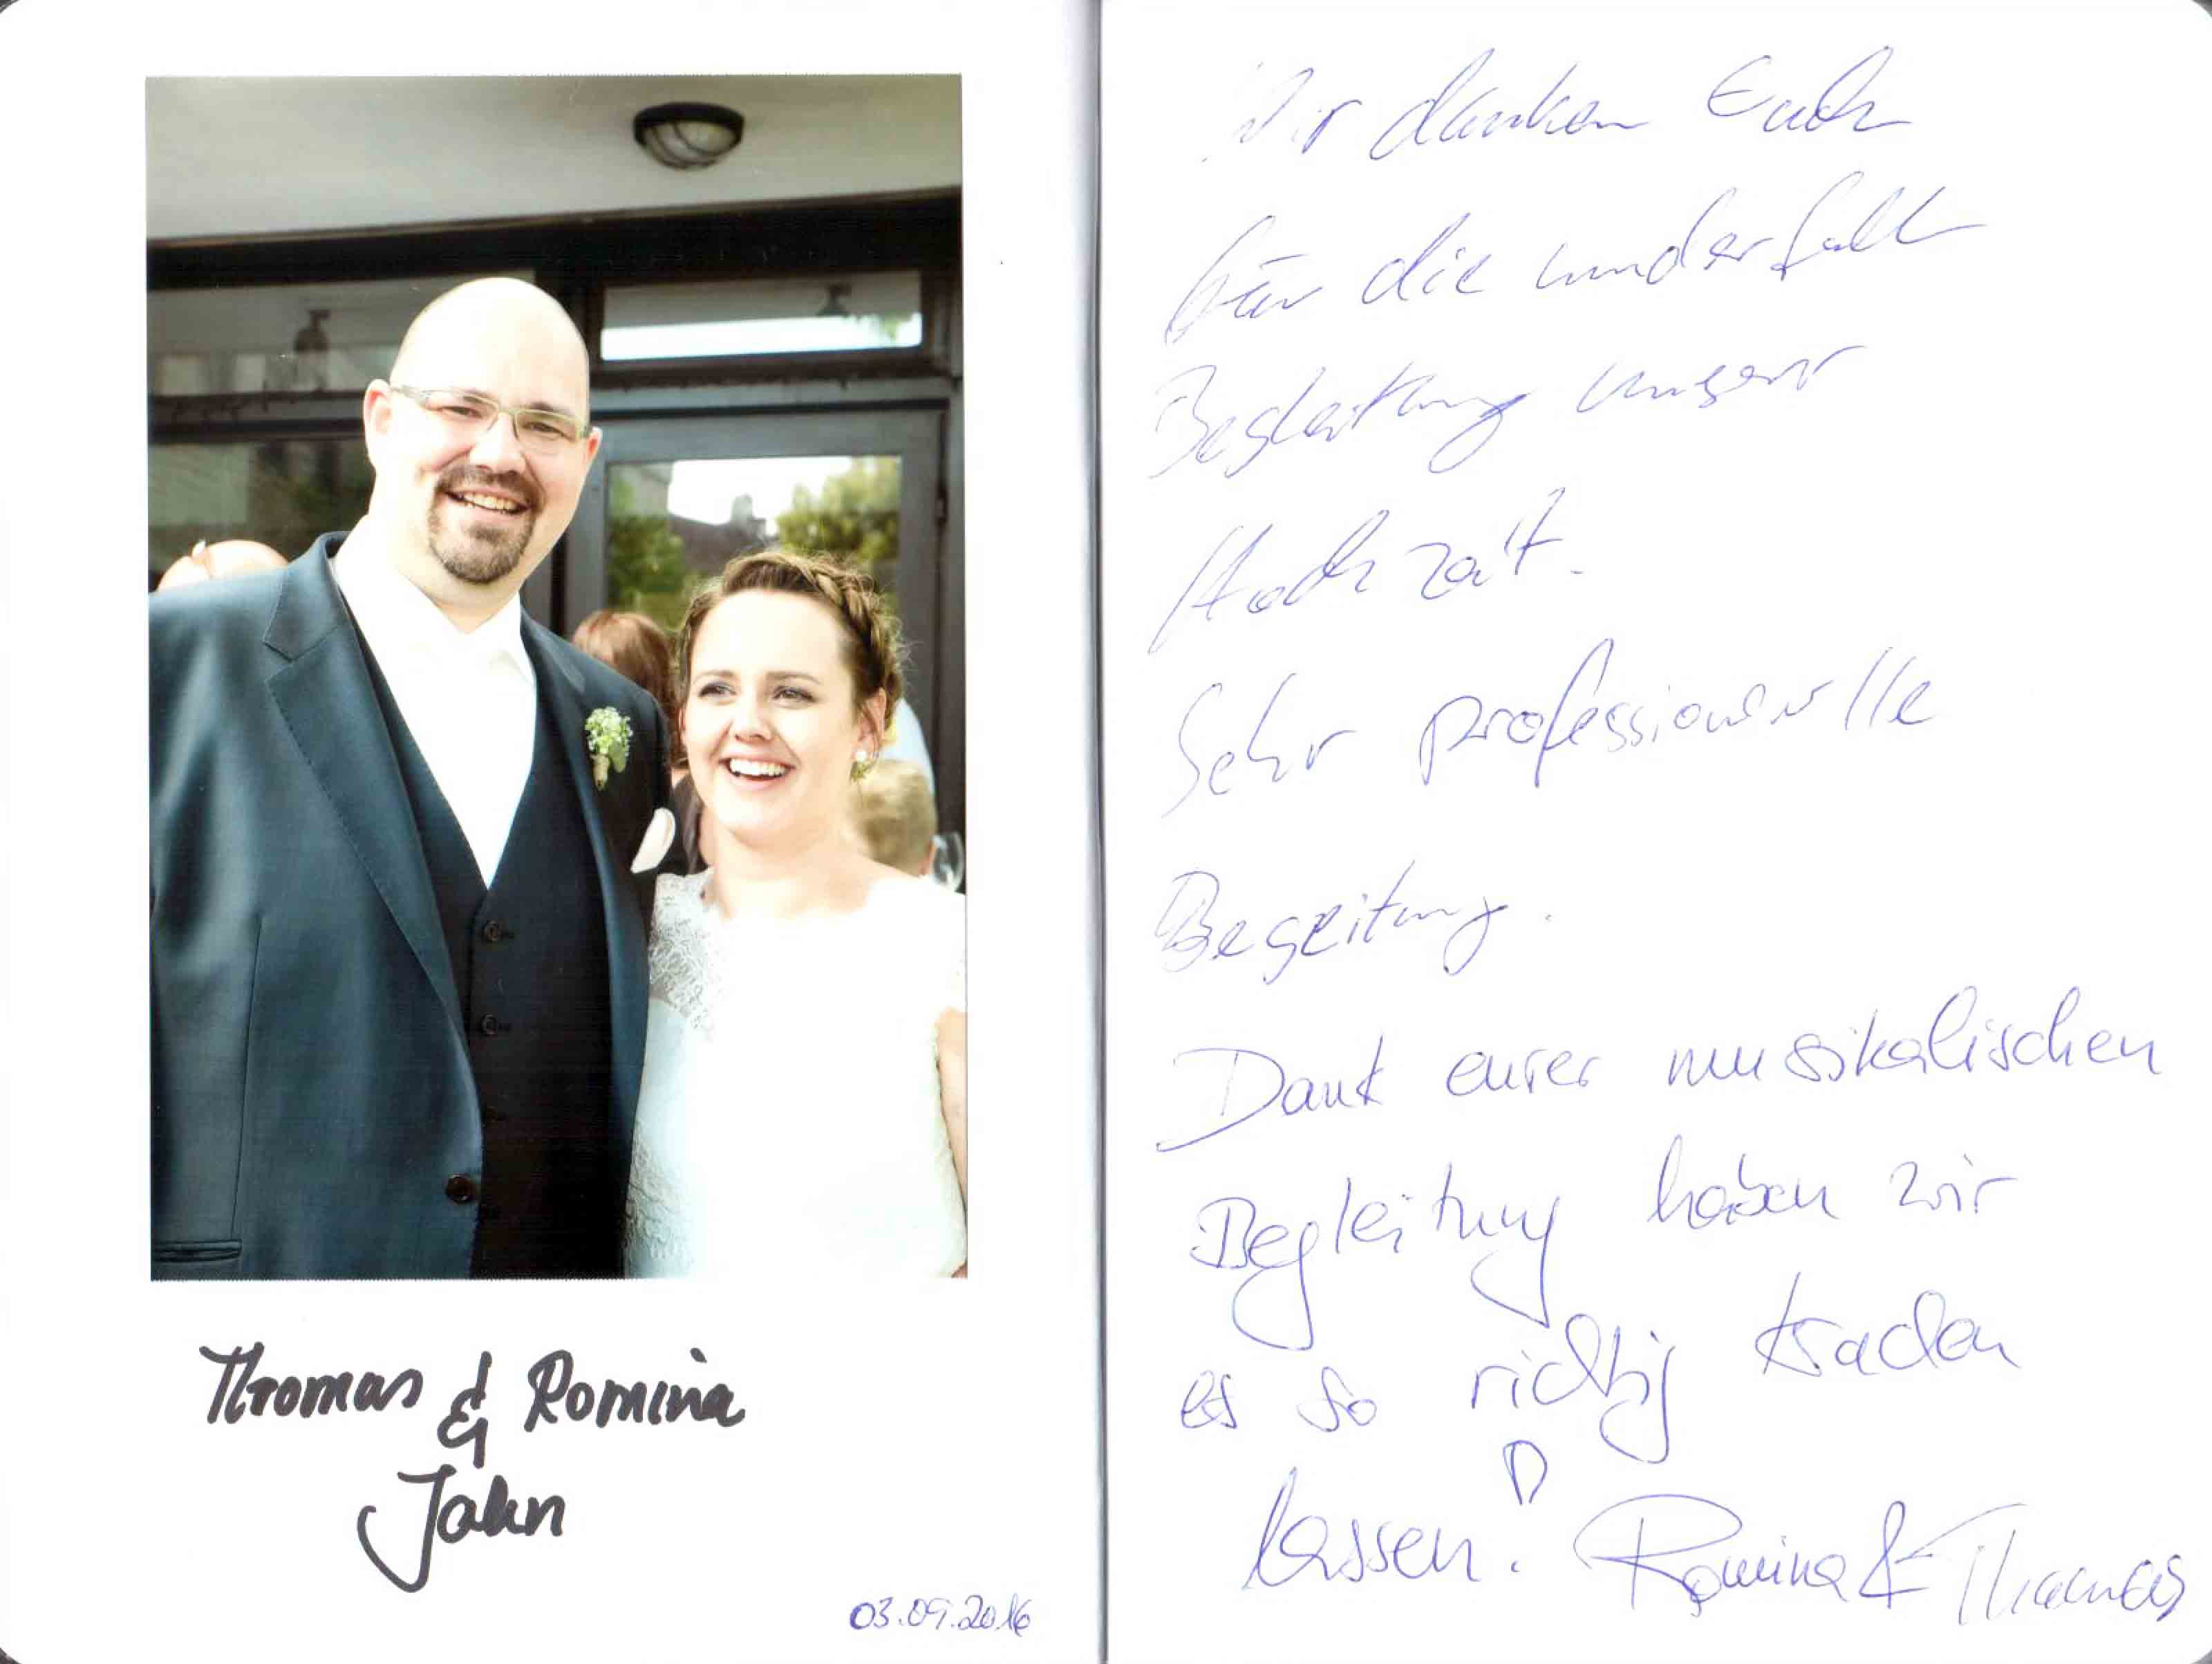 Thomas & Romina
Jahn
03.09.2016
Wir danken Euch
für die wunderfull
Begleitung unserer
Hochzeit.
Sehr professionelle
Begleitung.
Dank eurer musikalischen
Begleitung haben wir
es so richtig krachen
lassen! Romina & Thomas